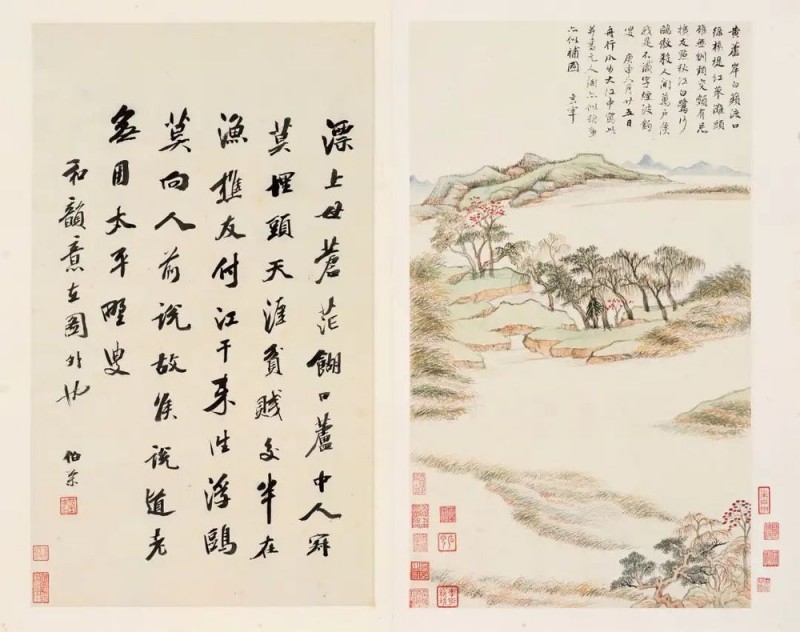 黄蘆岸白蘋渡口
綠楊堤紅蓼灘頭
雖無刎頸交頗有忘
機友點秋江白鷺沙
鷗傲殺人間萬戶侯
我是不識字煙波釣
叟 庚申八月廿五日
舟行 大江中寫此
并書元人
六似補圖
漂上母蒼茫餬口蘆中人
莫埋頭天涯貧賤交半在
漁樵友付江干來往浮鷗
莫向人前說故侯說道老
無用太平野叟
和韻意在圖外也